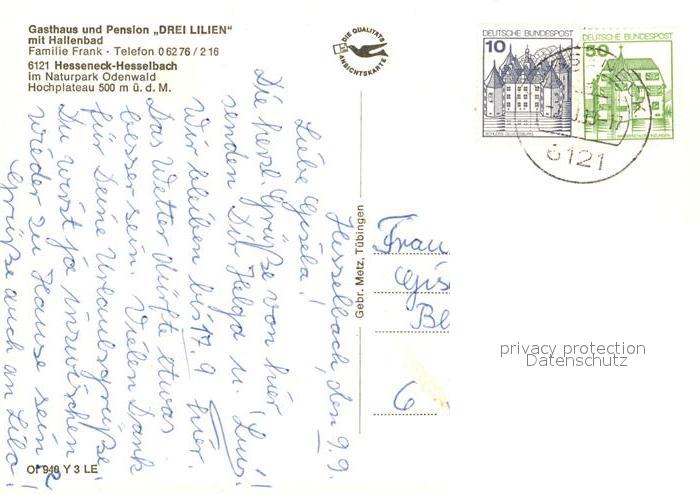 Gasthaus und Pension „DREI LILIEN"
mit Hallenbad
Familie Frank · Telefon 0 62 76 / 2 16
6121 Hesseneck-Hesselbach
im Naturpark Odenwald
Hochplateau 500 m ü. d. M.
DIE QUALITÄTS
ANSICHTSKARTE
DEUTSCHE BUNDESPOST
10
SCHLOSS GLÜCKSBURG
DEUTSCHE BUNDESPOST
50
HESSENECK
6121
Hesselbach, den 9.9.
Liebe Gisela!
Die herzl. Grüße von hier
senden Dir Helga u.
Wir bleiben bis 17.9 hier.
Das Wetter dürfte etwas
besser sein. Vielen Dank
für Deine Urlaubsgrüße.
Du wirst ja inzwischen
wieder zu Hause sein?
Grüße auch an Lilo!
Gebr. Metz, Tübingen
Frau
Gis
Be
6
privacy protection
Datenschutz
Of 940 Y 3 LE